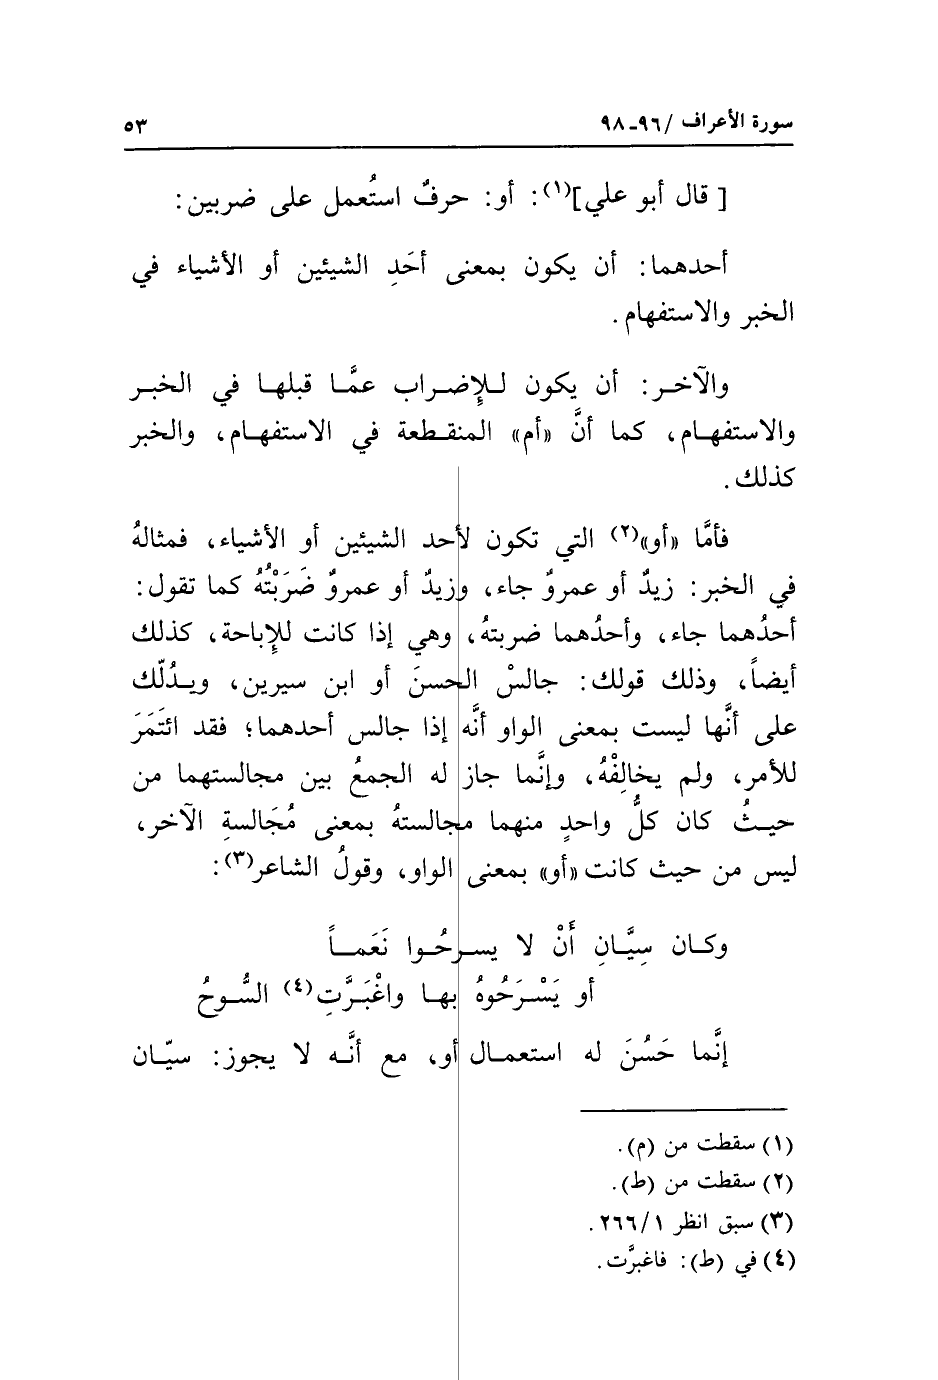 سورة الأعراف / ٩٦ـ٩٨ ٥٣
[ قال أبو علي](١): أو: حرفٌ استُعمل على ضربين:
أحدهما: أن يكون بمعنى أحَدِ الشيئين أو الأشياء في
الخبر والاستفهام.
والآخر: أن يكون للإضراب عمَّا قبلها في الخبر
والاستفهام، كما أنَّ «أم» المنقطعة في الاستفهام، والخبر
كذلك.
فأمَّا «أو»(٢) التي تكون لأحد الشيئين أو الأشياء، فمثالهُ
في الخبر: زيدٌ أو عمروٌ جاء، وزيدٌ أو عمروٌ ضَرَبْتُهُ كما تقول:
أحدُهما جاء، وأحدُهما ضربتهُ، وهي إذا كانت للإباحة، كذلك
أيضاً، وذلك قولك: جالسْ الحسنَ أو ابن سيرين، ويدُلّك
على أنَّها ليست بمعنى الواو أنَّه إذا جالس أحدهما؛ فقد ائتَمَرَ
للأمر، ولم يخالِفْهُ، وإنَّما جاز له الجمعُ بين مجالستهما من
حيثُ كان كلُّ واحدٍ منهما مجالستهُ بمعنى مُجَالسةِ الآخر،
ليس من حيث كانت «أو» بمعنى الواو، وقولُ الشاعر(٣):
وكان سِيَّانِ أَنْ لا يسرحُوا نَعَماً
أو يَسْرَحُوهُ بها واغْبَرَّتِ(٤) السُّوحُ
إنَّما حَسُنَ له استعمال أو، مع أنَّه لا يجوز: سيّان
(١) سقطت من (م).
(٢) سقطت من (ط).
(٣) سبق انظر ٢٦٦/١.
(٤) في (ط): فاغبرَّت.